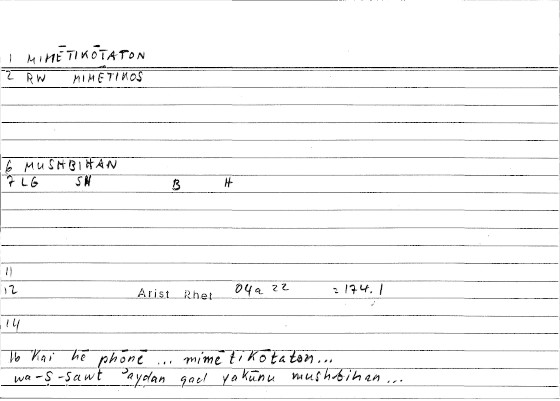 1 MIMĒTIKŌTATON
2 RW MIMĒTIKOS
6 MUSHBIHAN
7 LG SH B H
11
12 Arist Rhet 04a 22 =174.1
14
16 Kai hē phōnē ... mimētikōtaton...
wa-ṣ-ṣawt ʾayḍan qad yakūnu mushbihan...